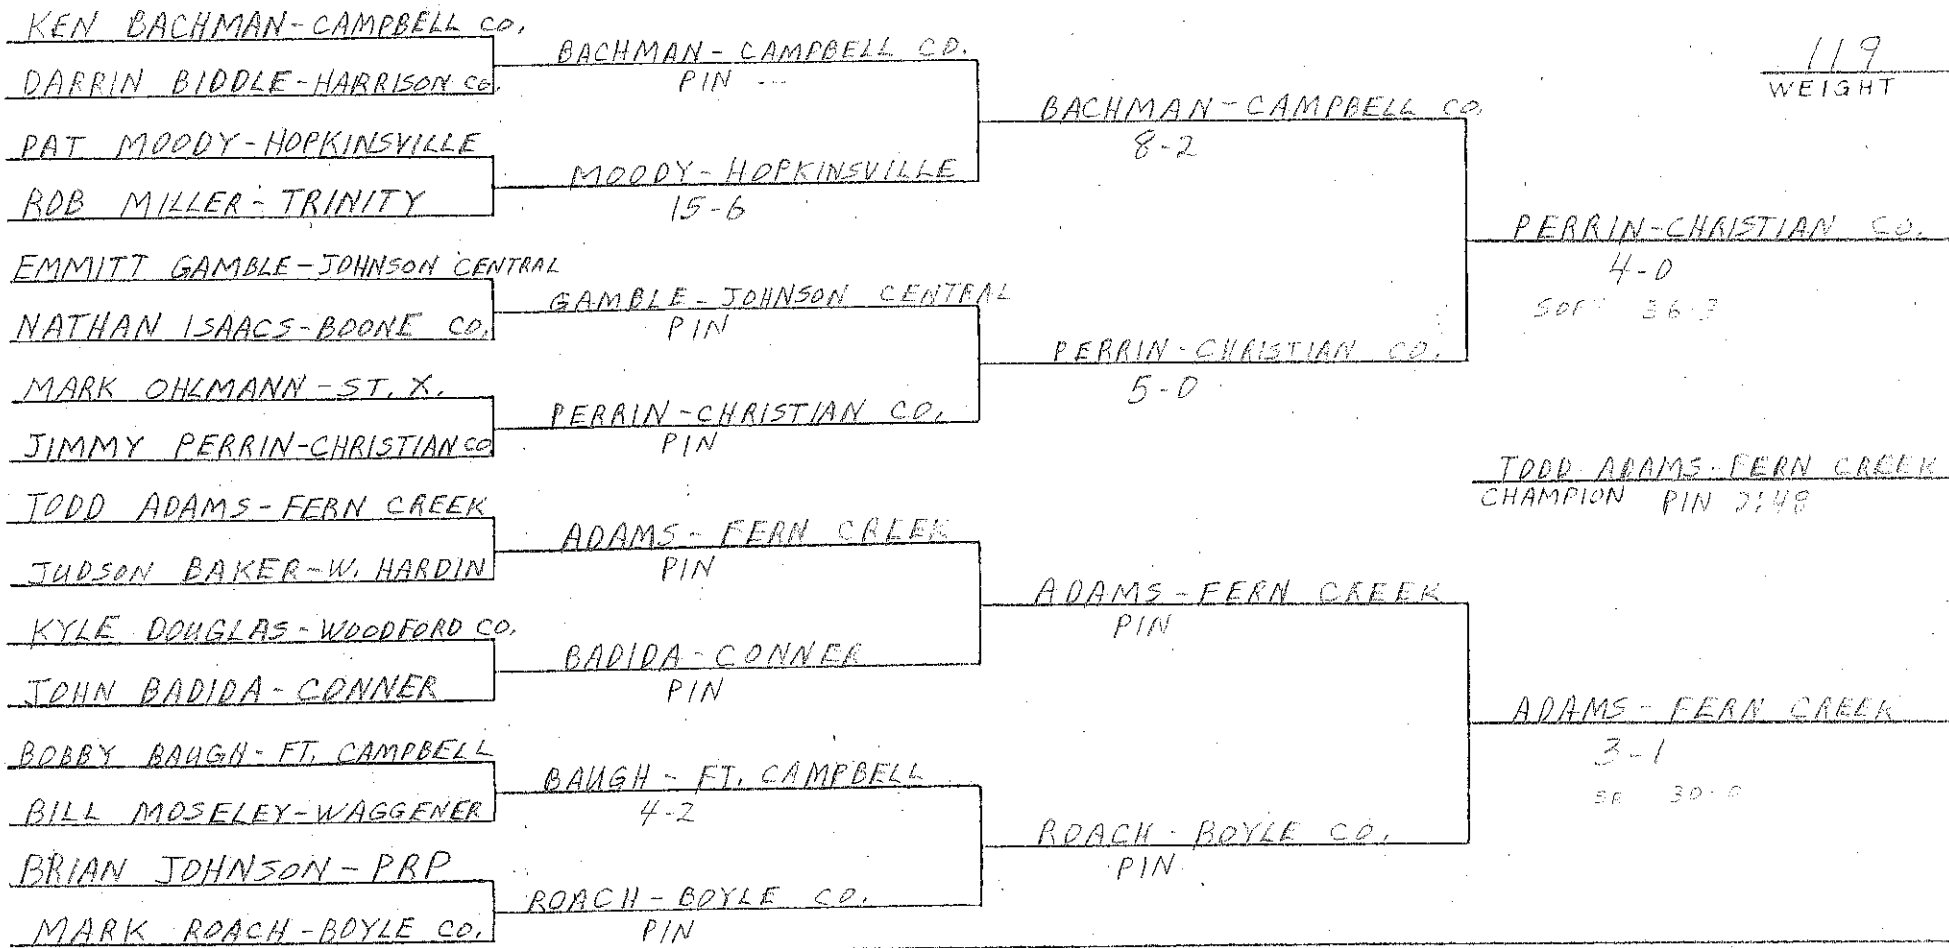 KEN BACHMAN-CAMPBELL CO.
DARRIN BIDDLE-HARRISON CO.
PAT MOODY-HOPKINSVILLE
ROB MILLER-TRINITY
EMMITT GAMBLE-JOHNSON CENTRAL
NATHAN ISAACS-BOONE CO.
MARK OHLMANN-ST. X.
JIMMY PERRIN-CHRISTIAN CO
TODD ADAMS-FERN CREEK
JUDSON BAKER-W. HARDIN
KYLE DOUGLAS-WOODFORD CO.
JOHN BADIDA-CONNER
BOBBY BAUGH-FT. CAMPBELL
BILL MOSELEY-WAGGENER
BRIAN JOHNSON-PRP
MARK ROACH-BOYLE CO.
BACHMAN-CAMPBELL CO.
PIN
MOODY-HOPKINSVILLE
15-6
GAMBLE-JOHNSON CENTRAL
PIN
PERRIN-CHRISTIAN CO.
PIN
ADAMS-FERN CREEK
PIN
BADIDA-CONNER
PIN
BAUGH-FT. CAMPBELL
4-2
ROACH-BOYLE CO.
PIN
BACHMAN-CAMPBELL CO.
8-2
PERRIN-CHRISTIAN CO.
5-0
ADAMS-FERN CREEK
PIN
ROACH-BOYLE CO.
PIN
119
WEIGHT
PERRIN-CHRISTIAN CO.
4-0
36-3
TODD ADAMS-FERN CREEK
CHAMPION PIN
ADAMS-FERN CREEK
3-1